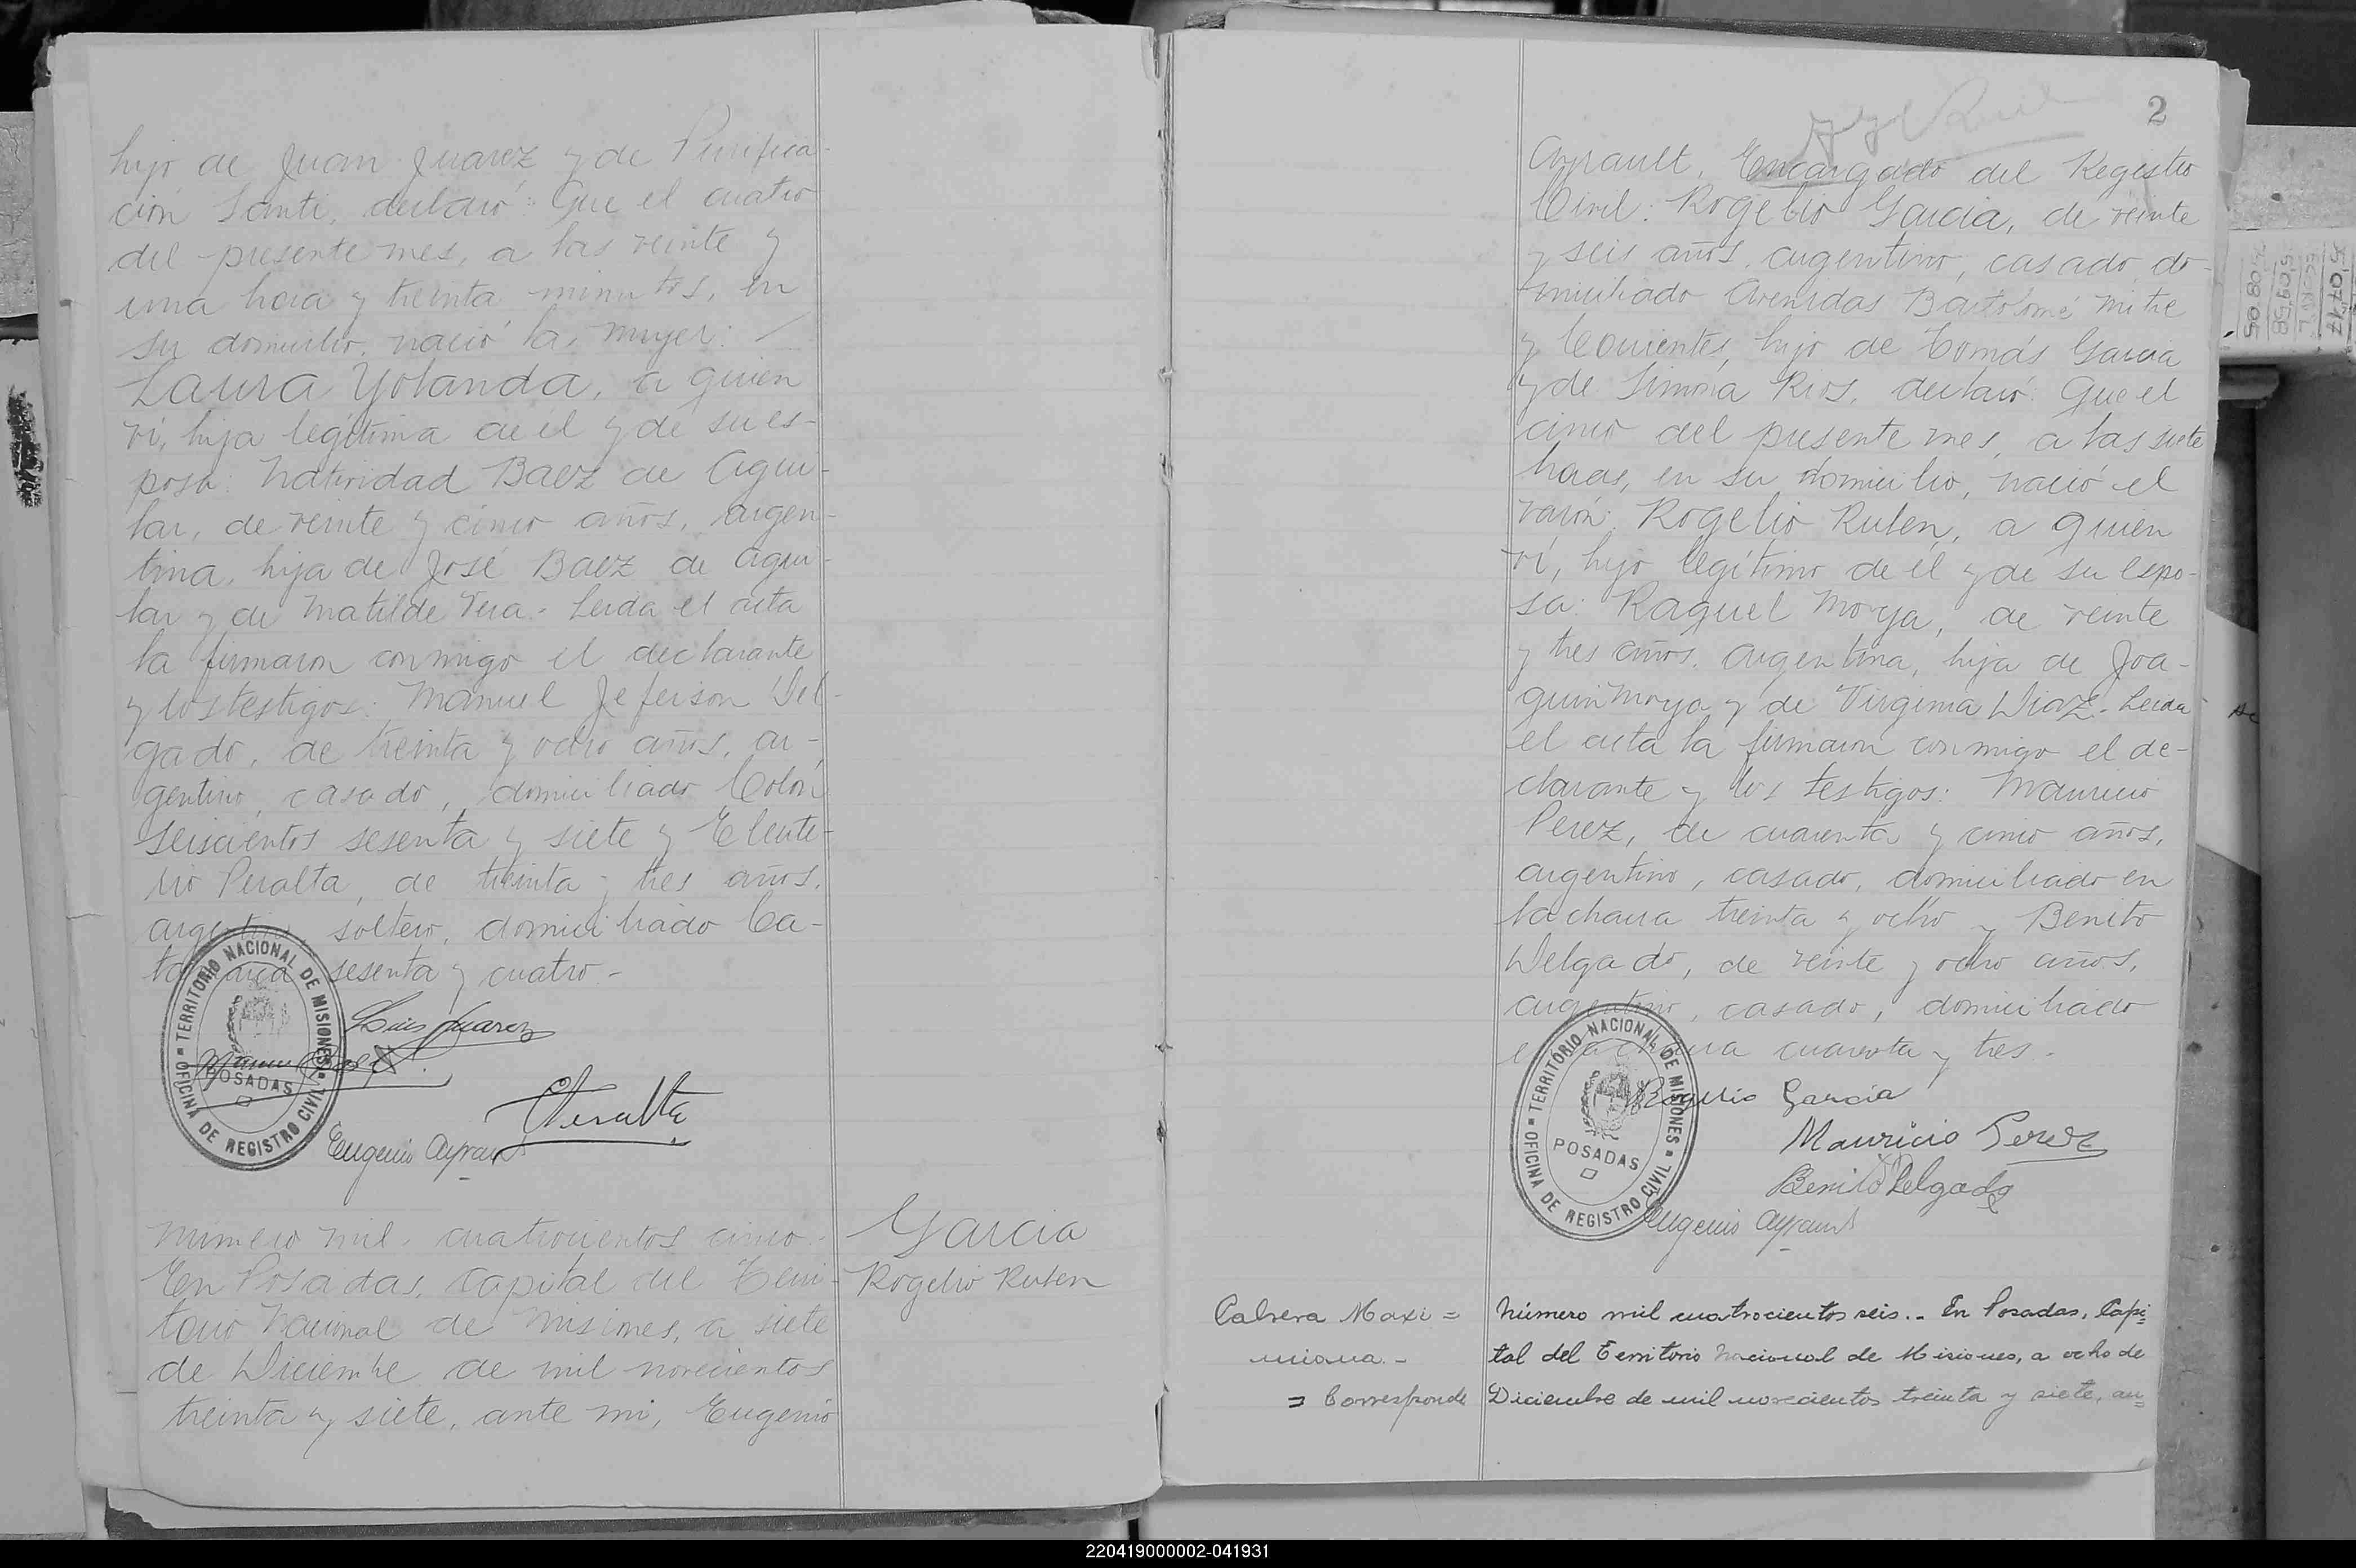 hijo de Juan Juarez y de Purifica-
ción Santi, declaró: Que el cuatro
del presente mes, a las veinte y
una hora y treinta minutos, en
su domicilio, nació la mujer:
Laura Yolanda, a quien
ví, hija legítima de él y de su es-
posa: Natividad Baez de Agui-
lar, de veinte y cinco años, argen-
tina, hija de José Baez de Agui-
lar y de Matilde Vera. Leida el acta
la firmaron conmigo el declarante
y los testigos: Manuel Jeferson Del-
gado, de treinta y ocho años, ar-
gentino, casado, domiciliado Colón
seiscientos sesenta y siete y Eleute-
rio Peralta, de treinta y tres años,
argentino, soltero, domiciliado Ca-
tamarca sesenta y cuatro.-
Luis Juarez
Peralta
Eugenio Ayrault
TERRITORIO NACIONAL DE MISIONES
POSADAS
OFICINA DE REGISTRO CIVIL
Número mil cuatrocientos cinco.
En Posadas, Capital del Terri-
torio Nacional de Misiones, a siete
de Diciembre de mil novecientos
treinta y siete, ante mi, Eugenio
Garcia
Rogelio Ruben
2
Ayrault, Encargado del Registro
Civil: Rogelio Garcia, de veinte
y seis años, argentino, casado, do-
miciliado Avenidas Bartolomé Mitre
y Corrientes, hijo de Tomás Garcia
y de Simona Rios, declaró: Que el
cinco del presente mes, a las siete
horas, en su domicilio, nació el
varón: Rogelio Ruben, a quien
ví, hijo legítimo de él y de su espo-
sa: Raquel Moya, de veinte
y tres años, argentina, hija de Joa-
quin Moya y de Virginia Diaz.- Leida
el acta la firmaron conmigo el de-
clarante y los testigos: Mauricio
Perez, de cuarenta y cinco años,
argentino, casado, domiciliado en
la chacra treinta y ocho y Benito
Delgado, de veinte y ocho años,
argentino, casado, domiciliado
en la chacra cuarenta y tres.-
Rogelio Garcia
Mauricio Perez
Benito Delgado
Eugenio Ayrault
TERRITORIO NACIONAL DE MISIONES
POSADAS
OFICINA DE REGISTRO CIVIL
Cabrera Maxi=
miana.-
= Corresponde
Número mil cuatrocientos seis.- En Posadas, Capi=
tal del Territorio Nacional de Misiones, a ocho de
Diciembre de mil novecientos treinta y siete, an=
220419000002-041931